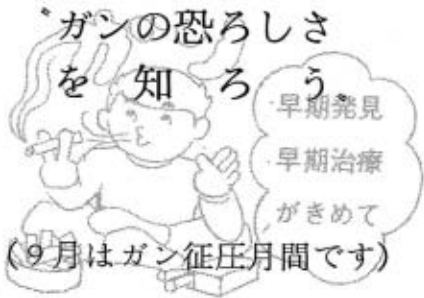 〝ガンの恐ろしさ
を知ろう〟
早期発見
早期治療
がきめて
(9月はガン征圧月間です)